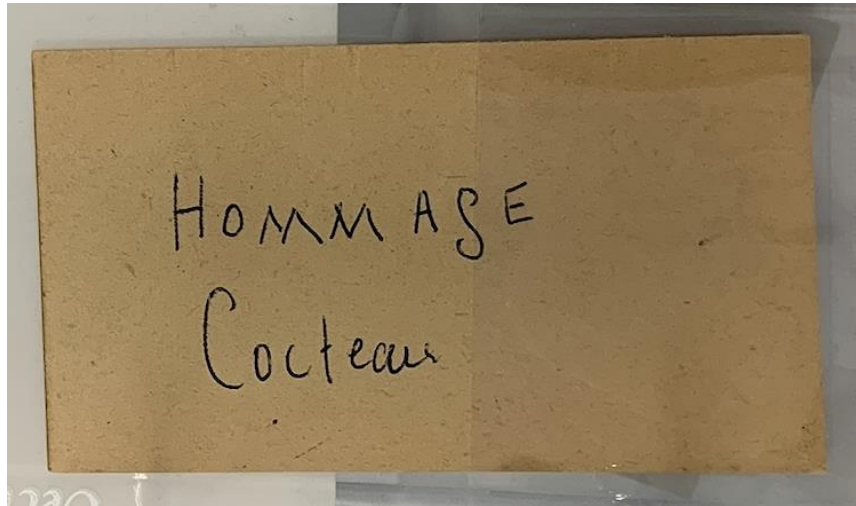 HOMMAGE
Cocteau